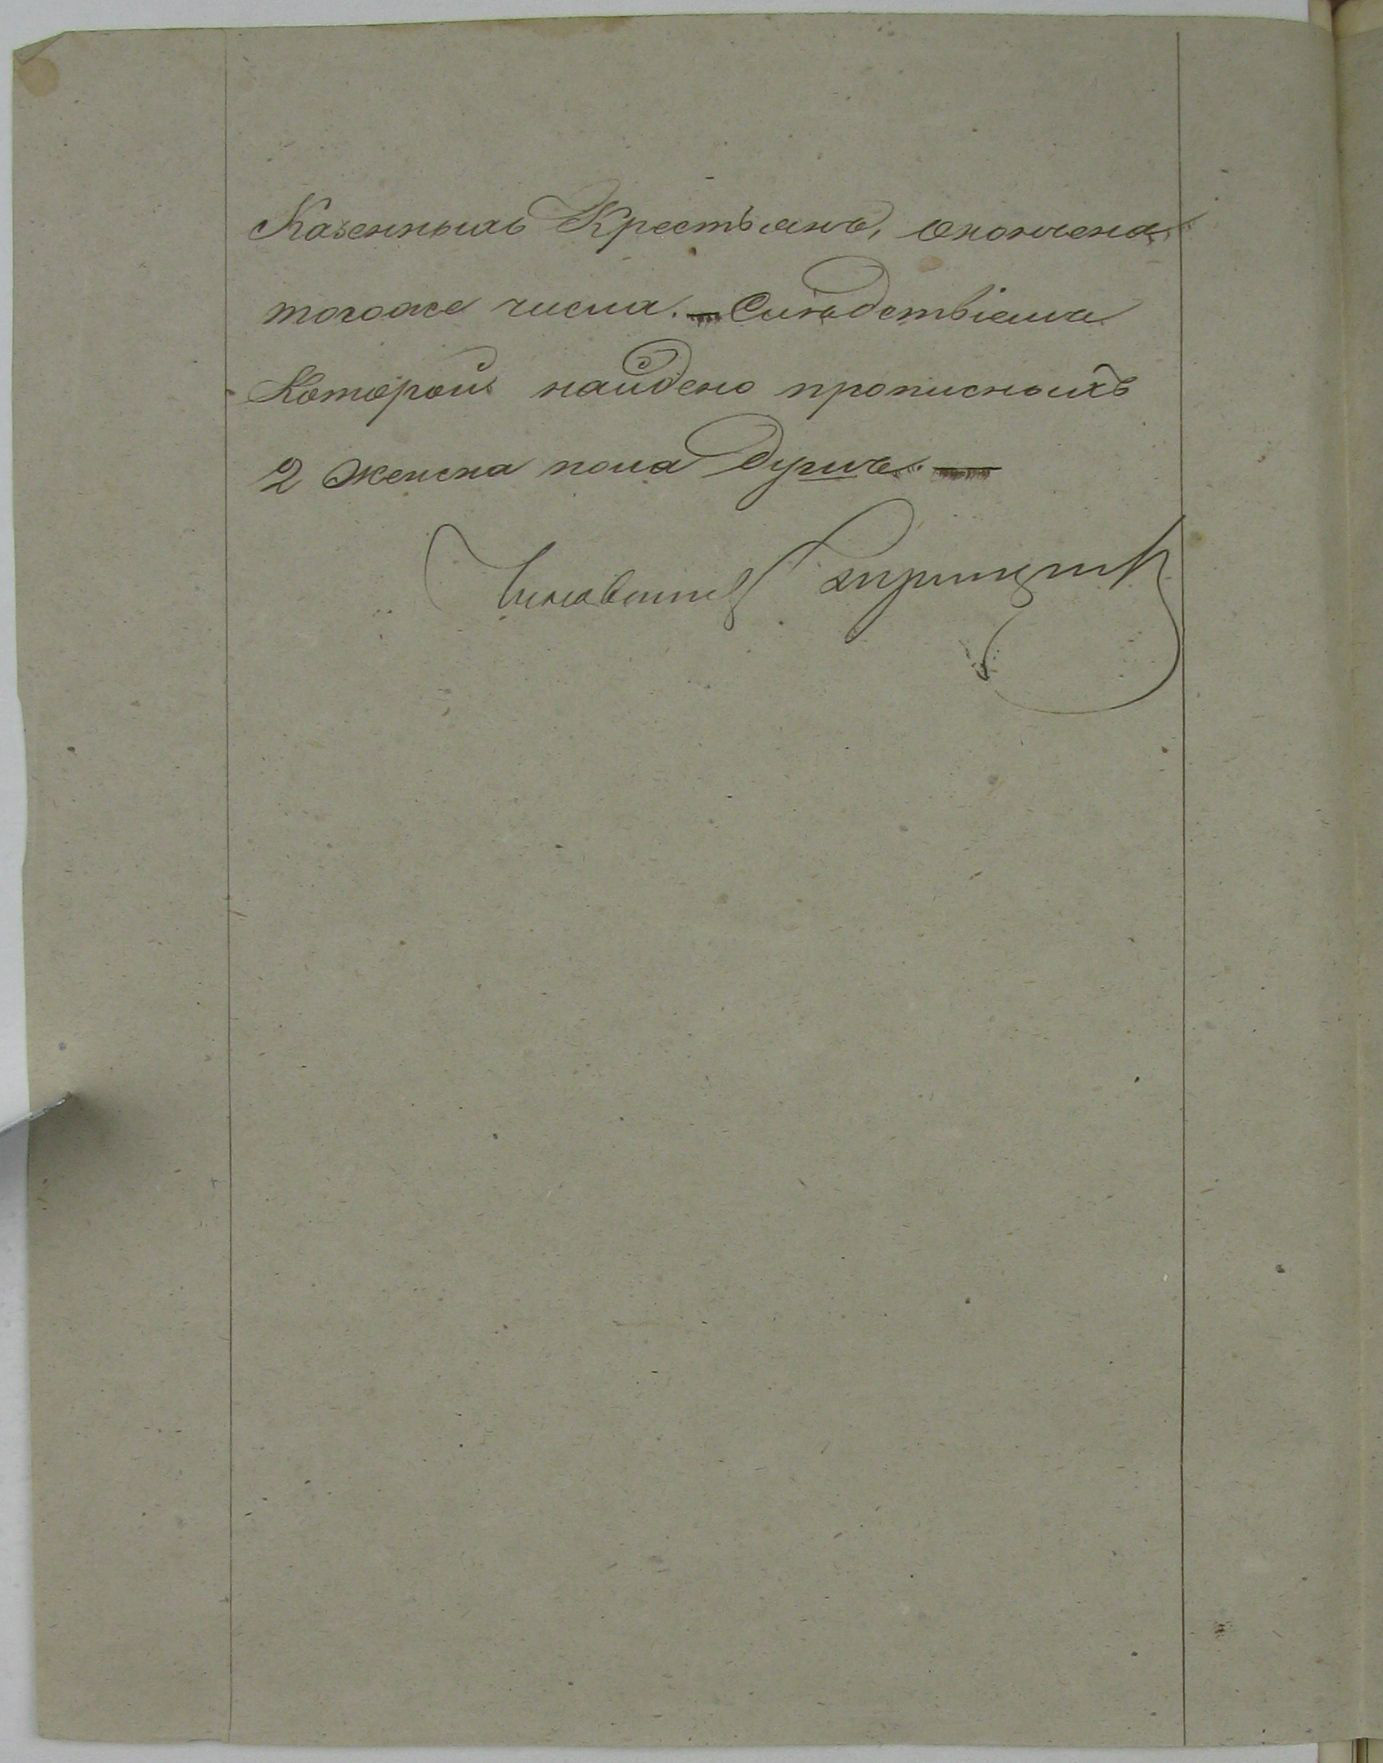 Казенныхъ Крестьянъ, окончена
тогоже числа. — Слѣдствіемъ
Которой найдено прописныхъ
2 женска пола душъ. —
Чиновникъ